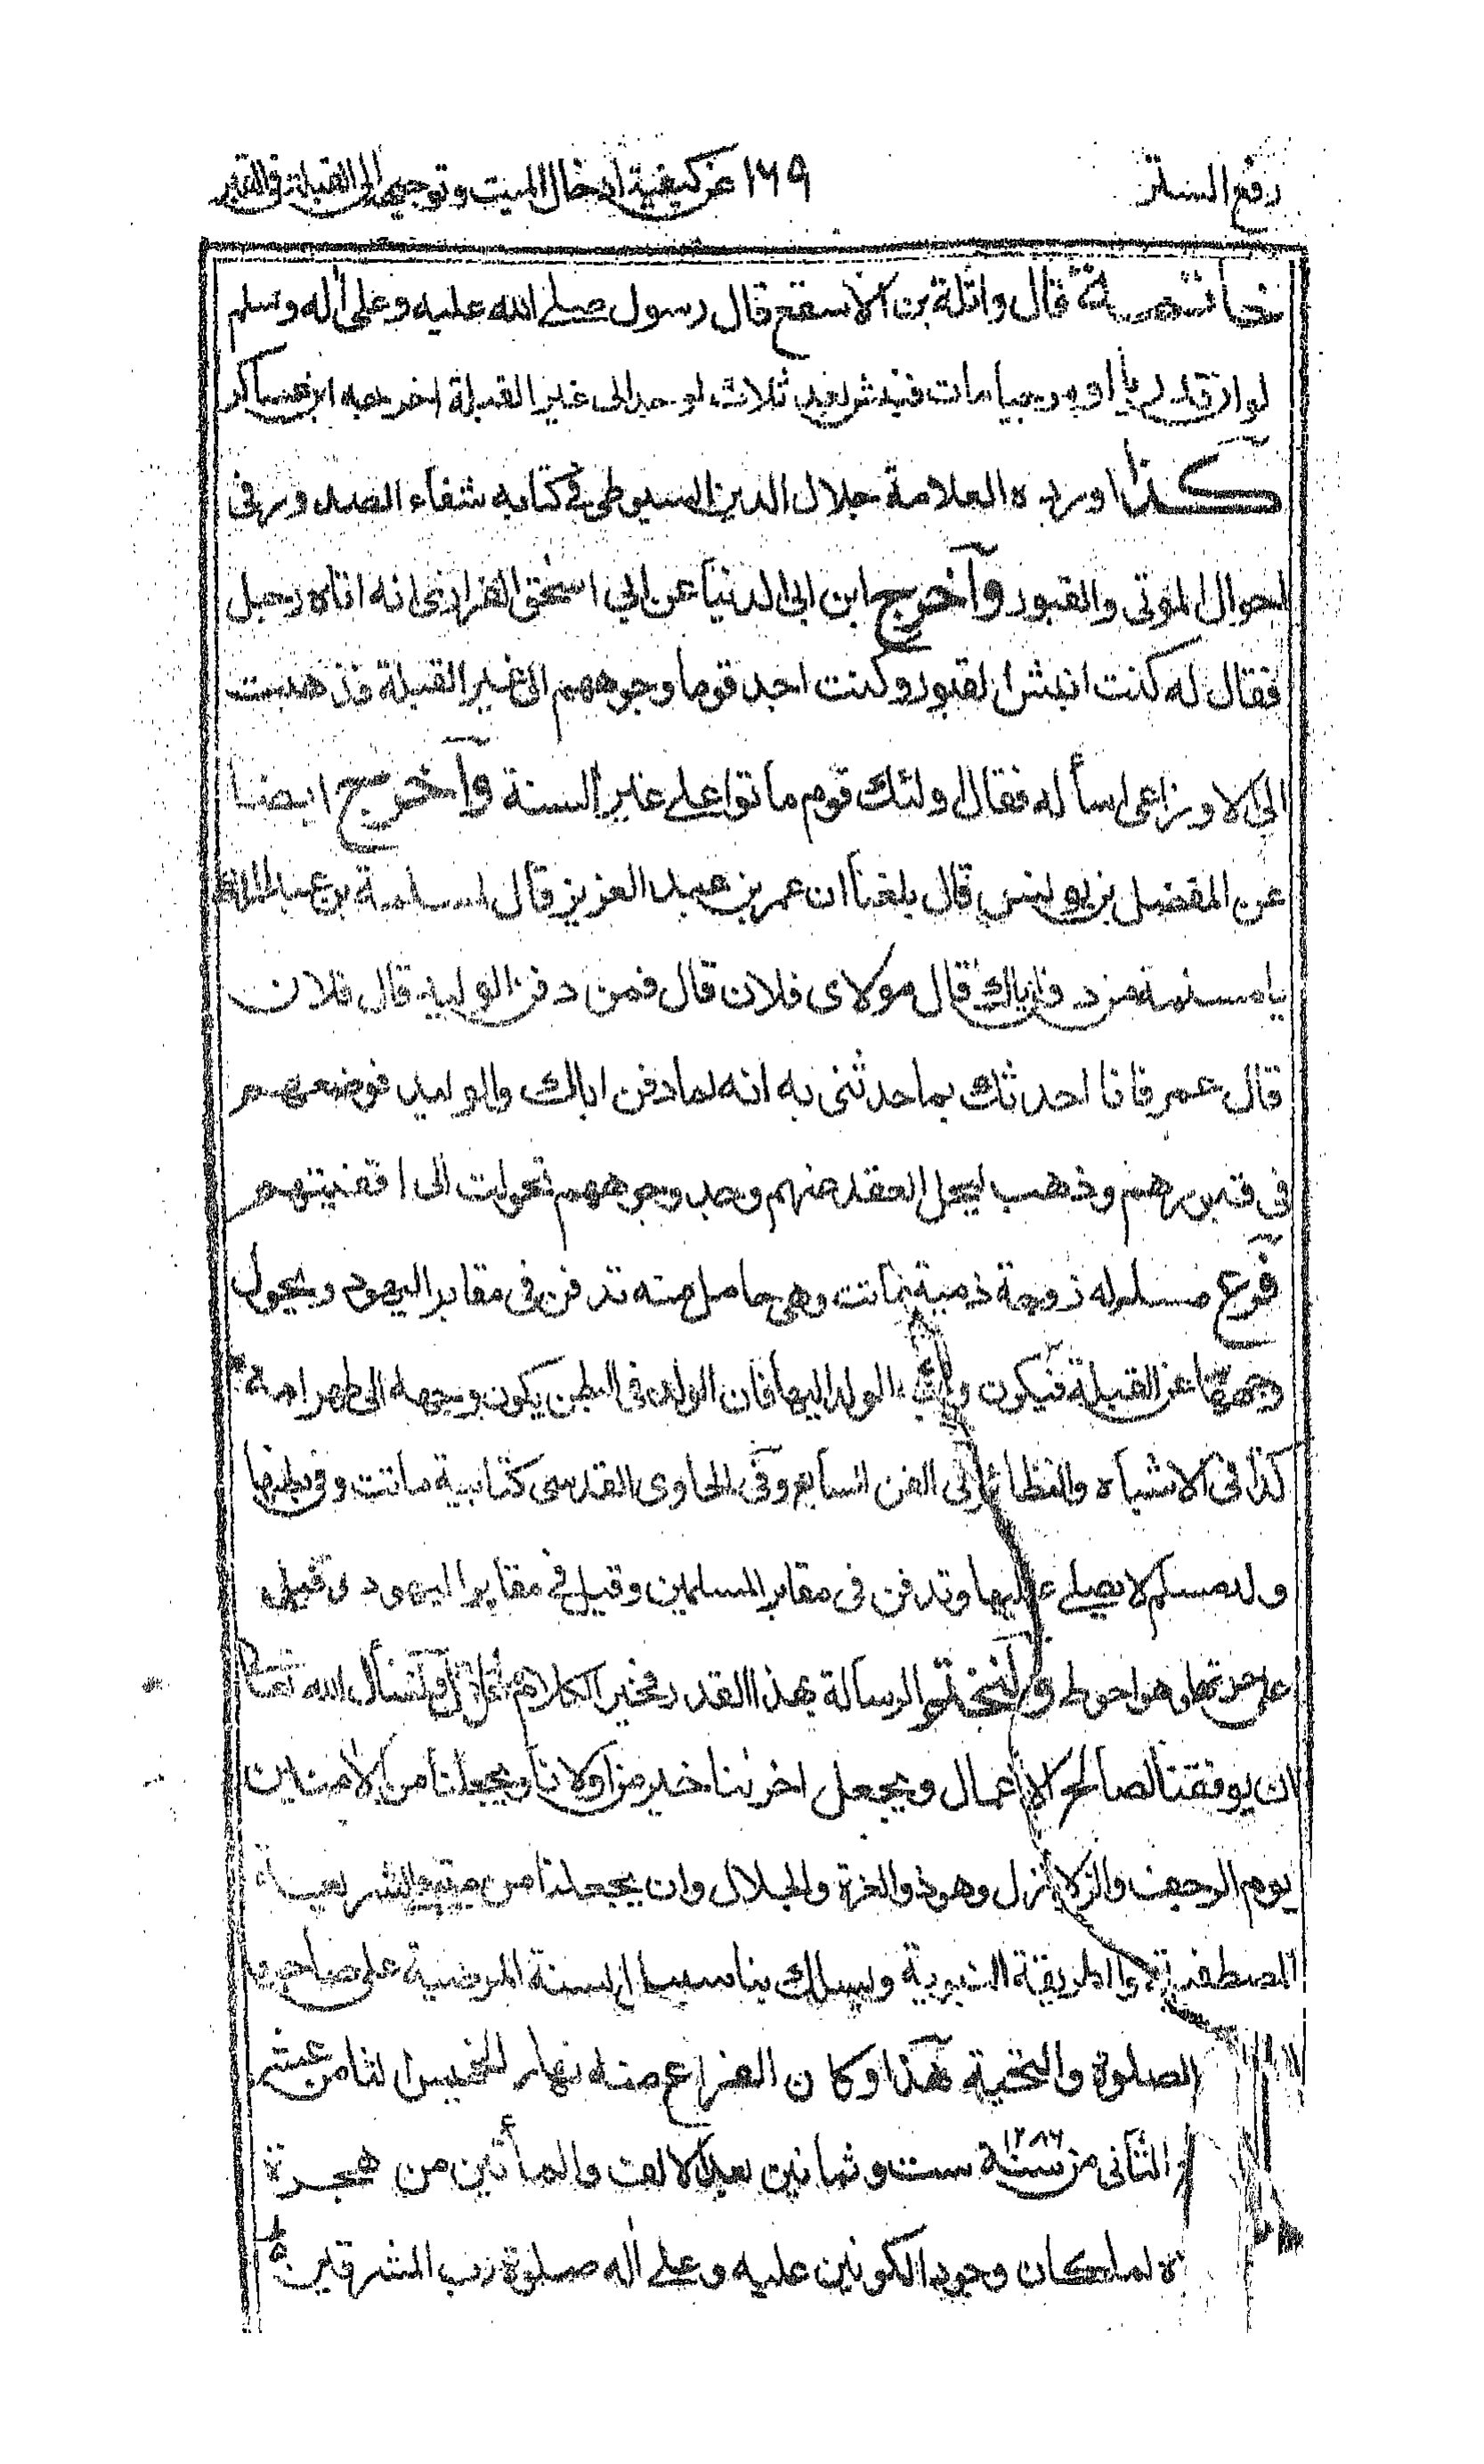 رفع الستر ١٦٩ عن كيفية ادخال الميت وتوجيهه الى القبلة فى القبر
خاتمة قال واثلة بن الاسقع قال رسول صلے الله عليه وعلى اله وسلم
لو ان قدريا او مرجيا مات فنبش بعد ثلاث لوجد الى غير القبلة اخرجه ابن عساكر
كذا اورده العلامة جلال الدين السيوطى فى كتابه شفاء الصدور فى
احوال الموتى والقبور وآخرج ابن ابى الدنيا عن ابي اسحق الفزارى انه اتاه رجل
فقال له كنت انبش القبور وكنت اجد قوما وجوههم الى غير القبلة فذهبت
الى الاوزاعى اسأله فقال اولئك قوم ماتوا على غير السنة وآخرج ايضا
عن المفضل بن يونس قال بلغنا ان عمر بن عبد العزيز قال لمسلمة بن عبد الملك
يا مسلمة من دفن اباك قال مولاى فلان قال فمن دفن الوليد قال فلان
قال عمر فانا احدثك بما حدثنى به انه لما دفن اباك والوليد فوضعهم
فى قبورهم وذهب ليحل العقد منهم وجد وجوههم تحولت الى اقفيتهم
فرع مسلم له زوجة ذمية ماتت وهى حامل منه تدفن فى مقابر اليهود ويحول
وجهها عن القبلة فيكون الولد اليها فان الولد فى البطن يكون وجهه الى ظهر امه
كذا فى الاشباه والنظائر فى الفن السابع وفى الحاوى القدسى كتابية ماتت وفى بطنها
ولد مسلم لا يصلے عليها وتدفن فى مقابر المسلمين وقيل فى مقابر اليهود قيل
على حدة وهو احوط ولنختم الرسالة بهذا القدر فخير الكلام ما قل ودل ونسأل الله تعالى
ان يوفقنا لصالح الاعمال ويجعل اخرتنا خير من اولانا ويجعلنا من الآمنين
يوم الرجف والزلازل وهو ذو العزة والجلال وان يجعلنا من متبعى الشريعة
المصطفوية والطريقة النبوية ويسلك بنا سبيل السنة المرضية على صاحبها
الصلوة والتحية هذا وكان الفراغ منه نهار الخميس لثامن عشر
الثانى من سنة ١٢٨٦ ست وثمانين بعد الالف والمأتين من هجرة
لما كان وجود الكونين عليه وعلى اله صلوة رب المشرقين